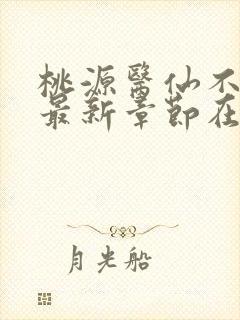 桃源醫仙不
最新章節在
月光船